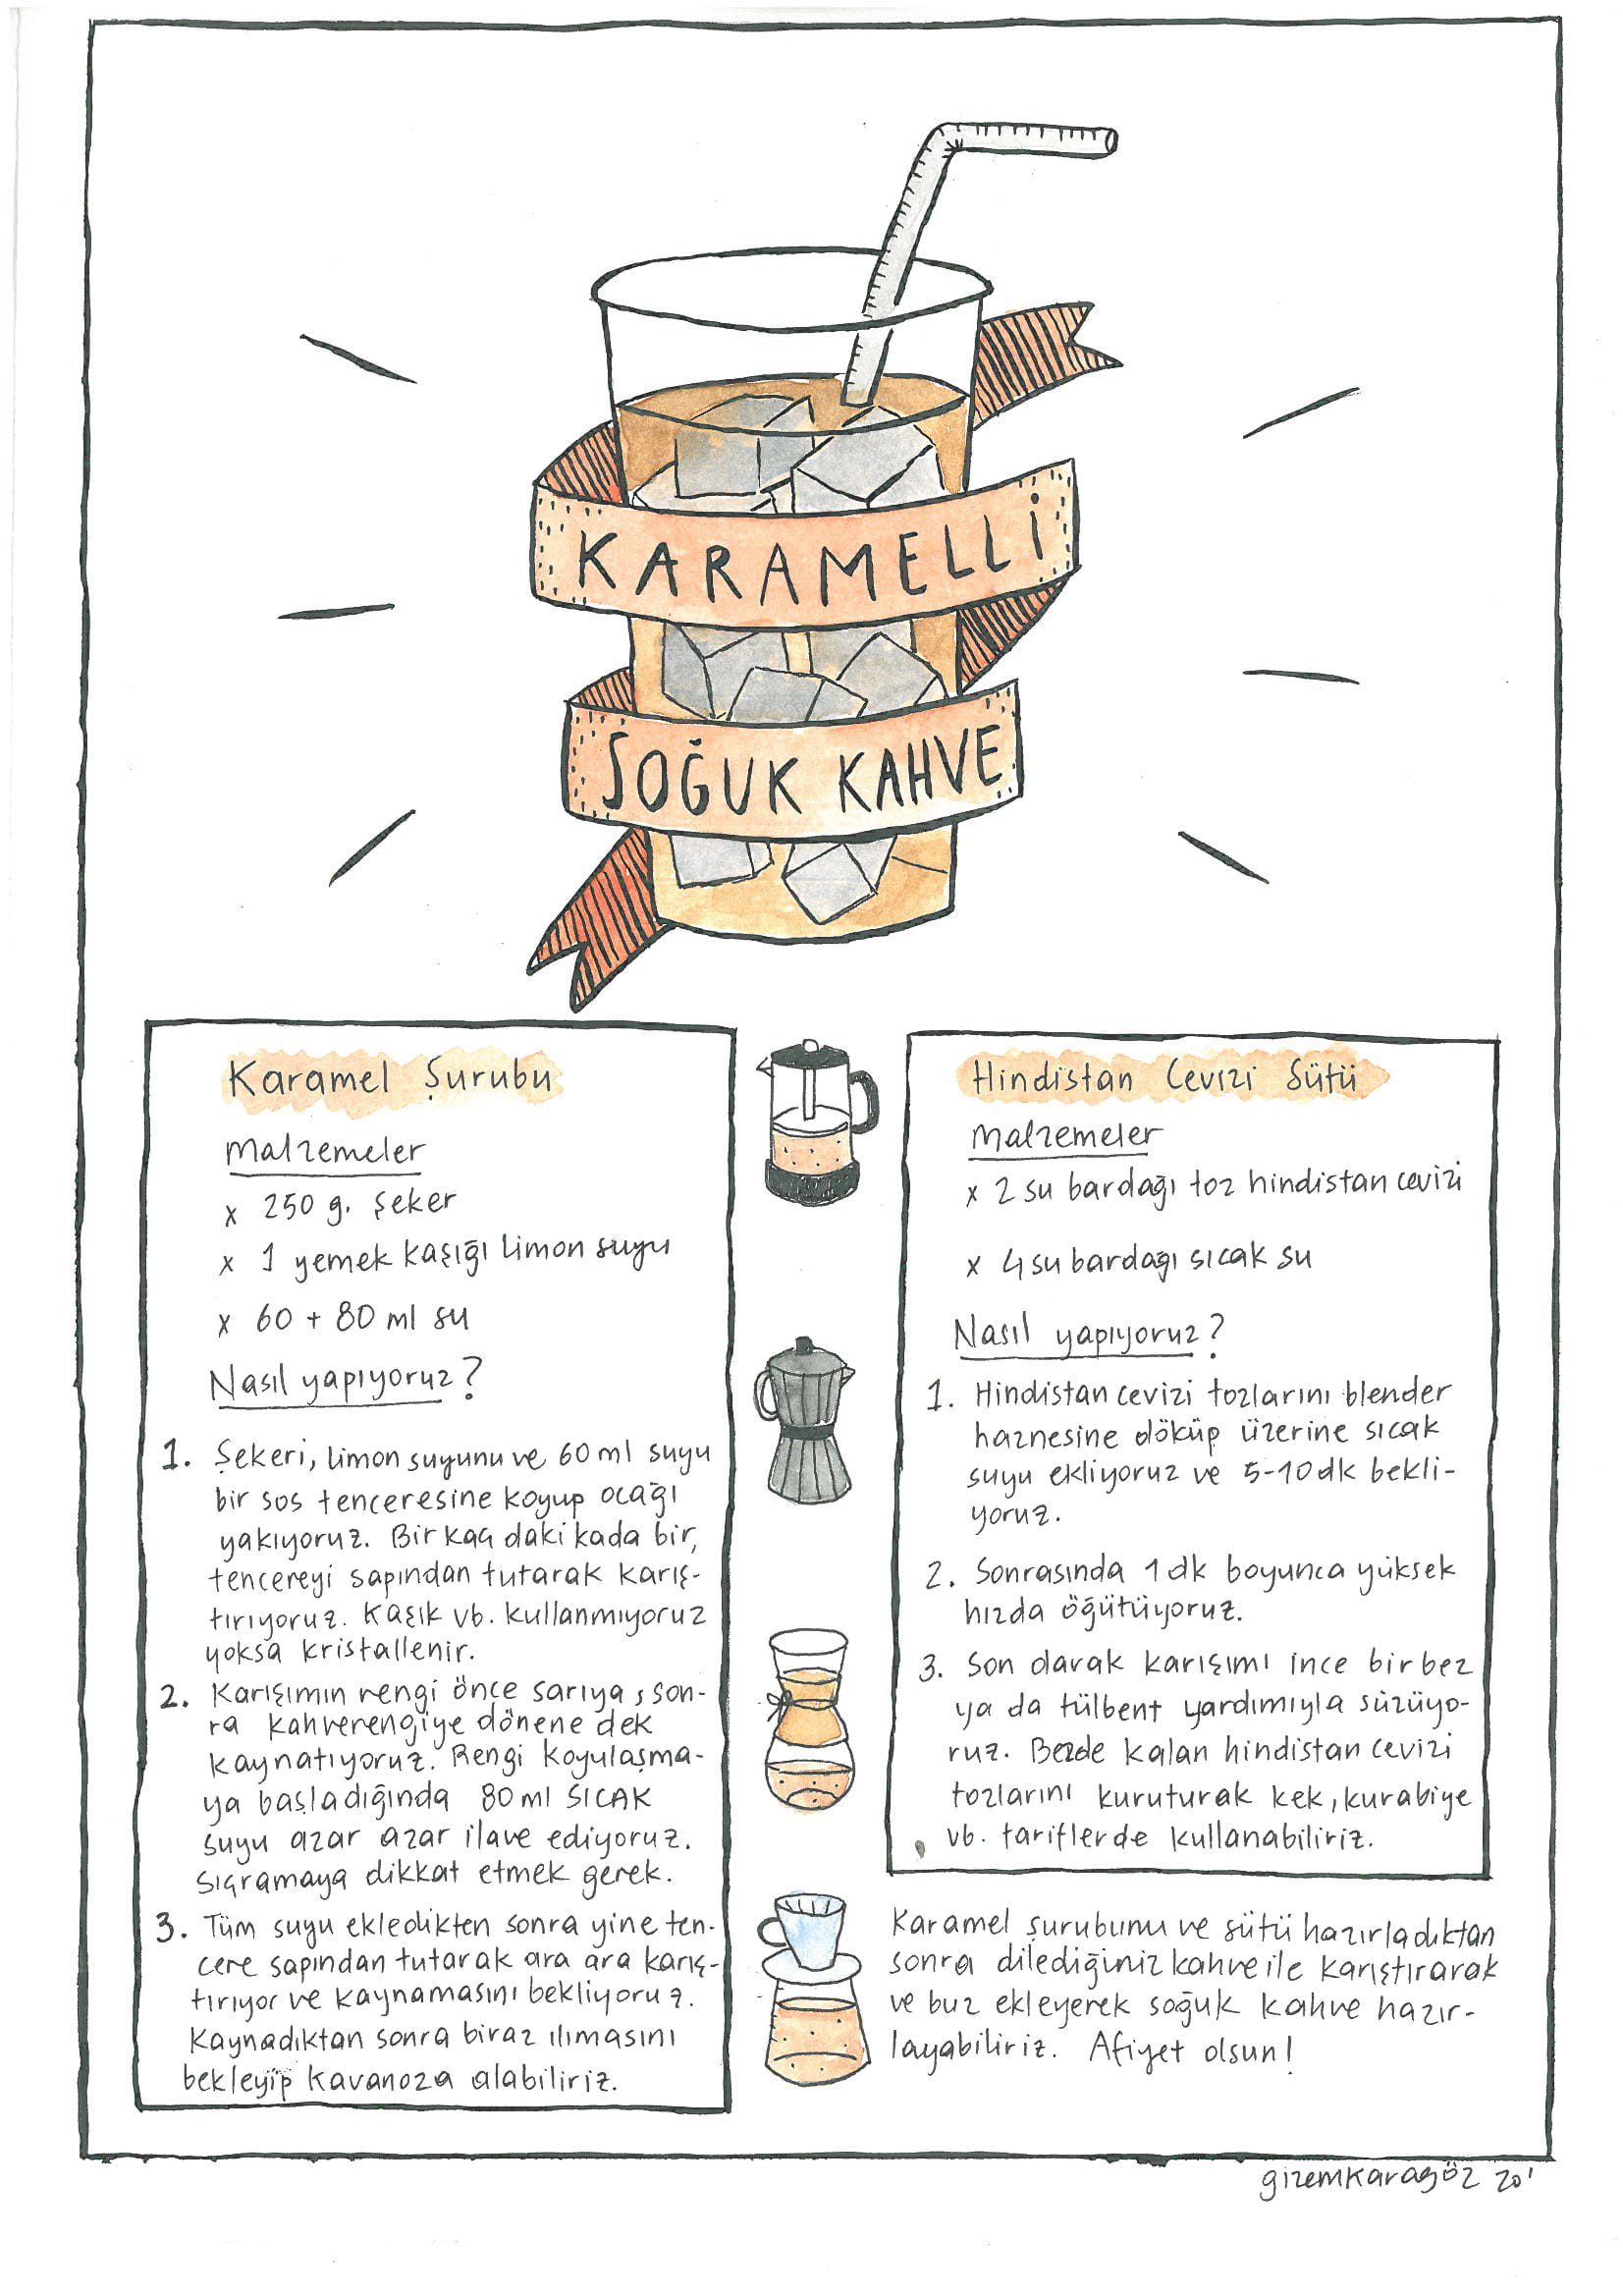 KARAMELLİ
SOĞUK KAHVE
Karamel Şurubu
Malzemeler
x 250 g. şeker
x 1 yemek kaşığı limon suyu
x 60 + 80 ml su
Nasıl yapıyoruz?
1. Şekeri, limon suyunu ve 60 ml suyu
bir sos tenceresine koyup ocağı
yakıyoruz. Bir kaç daki kada bir,
tencereyi sapından tutarak karış-
tırıyoruz. Kaşık vb. kullanmıyoruz
yoksa kristallenir.
2. Karışımın rengi önce sarıya, son-
ra kahverengiye dönene dek
kaynatıyoruz. Rengi koyulaşma-
ya başladığında 80 ml SICAK
suyu azar azar ilave ediyoruz.
Sıçramaya dikkat etmek gerek.
3. Tüm suyu ekledikten sonra yine ten-
cere sapından tutarak ara ara karış-
tırıyor ve kaynamasını bekliyoruz.
Kaynadıktan sonra biraz ılımasını
bekleyip kavanoza alabiliriz.
Hindistan Cevizi Sütü
Malzemeler
x 2 su bardağı toz hindistan cevizi
x 4 su bardağı sıcak su
Nasıl yapıyoruz?
1. Hindistan cevizi tozlarını blender
haznesine döküp üzerine sıcak
suyu ekliyoruz ve 5-10 dk bekli-
yoruz.
2. Sonrasında 1 dk boyunca yüksek
hızda öğütüyoruz.
3. Son olarak karışımı ince bir bez
ya da tülbent yardımıyla süzüyo-
ruz. Bezde kalan hindistan cevizi
tozlarını kuruturak kek, kurabiye
vb. tariflerde kullanabiliriz.
Karamel şurubunu ve sütü hazırladıktan
sonra dilediğiniz kahve ile karıştırarak
ve buz ekleyerek soğuk kahve hazır-
layabiliriz. Afiyet olsun!
gizemkaragöz 20'